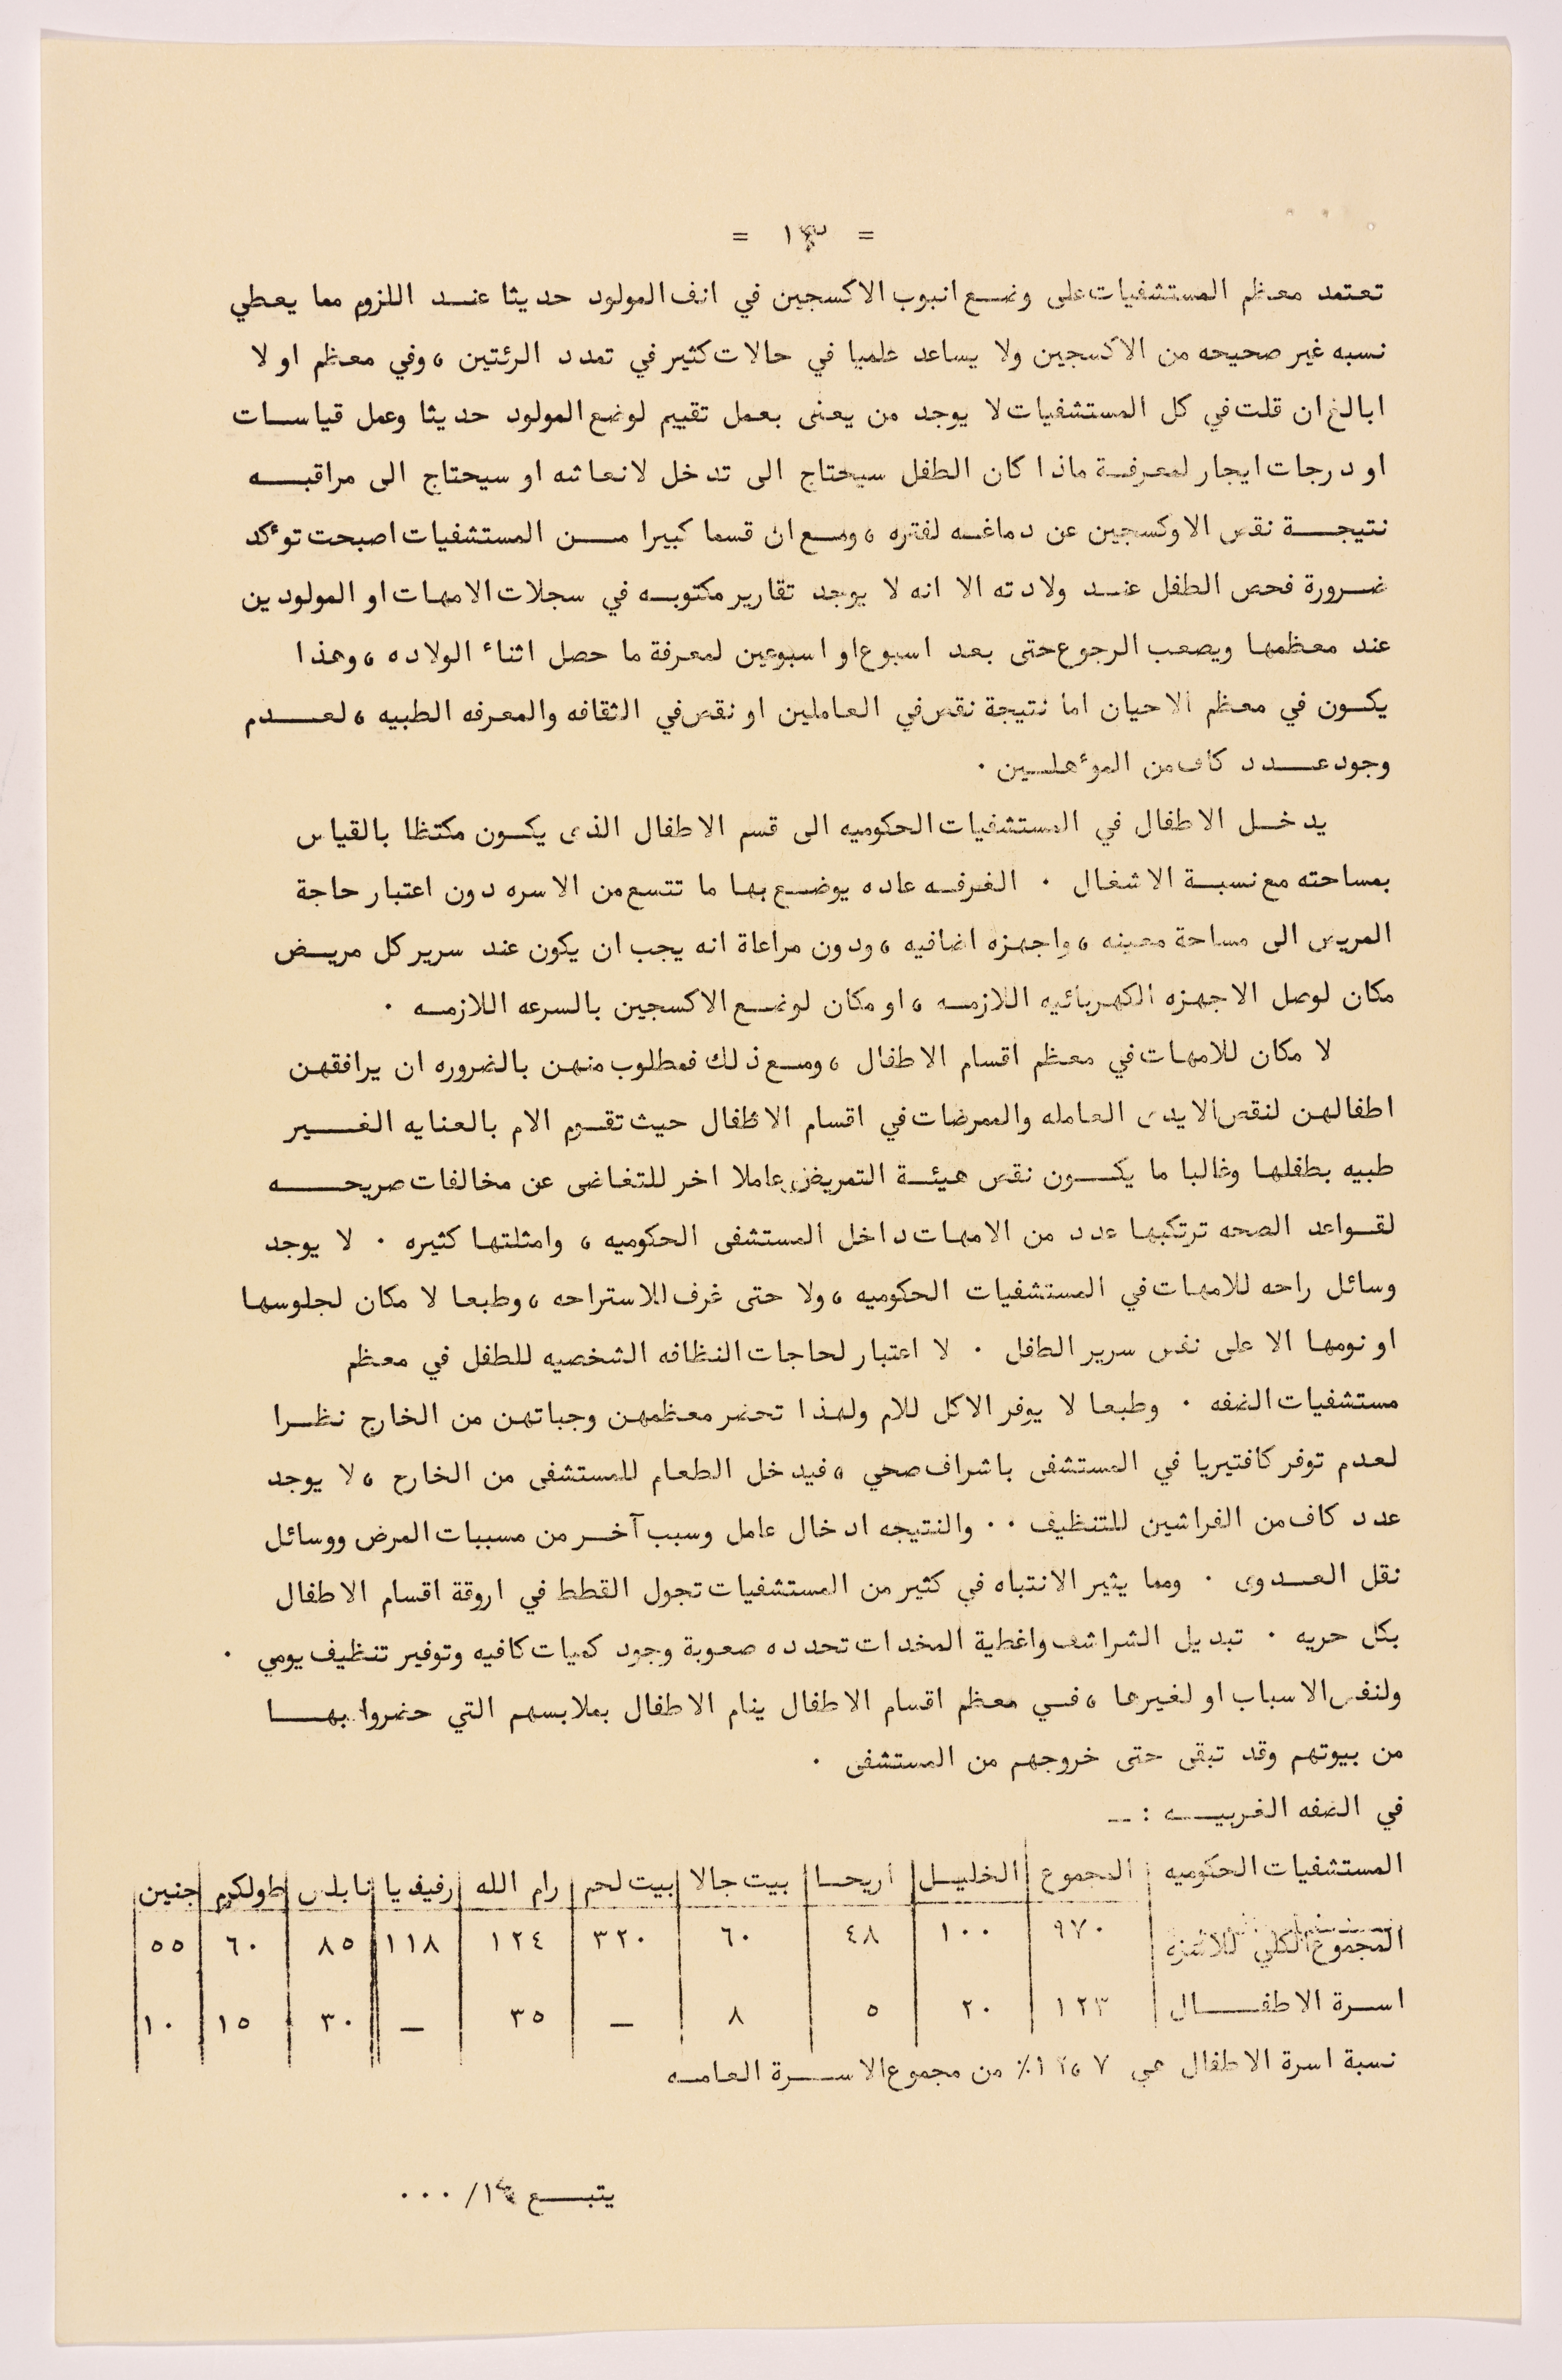 = ١٣ =
تعتمد معظم المستشفيات على وضع انبوب الاكسجين في انف المولود حديثا عند اللزوم مما يعطي
نسبه غير صحيحه من الاكسجين ولا يساعد علميا في حالات كثير في تمدد الرئتين ، وفي معظم او لا
ابالغ ان قلت في كل المستشفيات لا يوجد من يعنى بعمل تقييم لوضع المولود حديثا وعمل قياسات
او درجات ايجار لمعرفة ماذا كان الطفل سيحتاج الى تدخل لانعاشه او سيحتاج الى مراقبه
نتيجة نقص الاوكسجين عن دماغه لفتره ، ومع ان قسما كبيرا من المستشفيات اصبحت توٴكد
ضرورة فحص الطفل عند ولادته الا انه لا يوجد تقارير مكتوبه في سجلات الامهات او المولودين
عند معظمها ويصعب الرجوع حتى بعد اسبوع او اسبوعين لمعرفة ما حصل اثناء الولاده ، وهذا
يكون في معظم الاحيان اما نتيجة نقص في العاملين او نقص في الثقافه والمعرفه الطبيه ، لعدم
وجود عدد كاف من الموٴهلين .
يدخل الاطفال في المستشفيات الحكوميه الى قسم الاطفال الذى يكون مكتظا بالقياس
بمساحته مع نسبة الاشغال . الغرفه عاده يوضع بها ما تتسع من الاسره دون اعتبار حاجة
المريض الى مساحة معينه ، واجهزه اضافيه ، ودون مراعاة انه يجب ان يكون عند سرير كل مريض
مكان لوصل الاجهزه الكهربائيه اللازمه ، او مكان لوضع الاكسجين بالسرعه اللازمه .
لا مكان للامهات في معظم اقسام الاطفال ، ومع ذلك فمطلوب منهن بالضروره ان يرافقهن
اطفالهن لنقص الايدى العامله والممرضات في اقسام الاطفال حيث تقوم الام بالعنايه الغير
طبيه بطفلها وغالبا ما يكون نقص هيئة التمريض عاملا اخر للتغاضى عن مخالفات صريحه
لقواعد الصحه ترتكبها عدد من الامهات داخل المستشفى الحكوميه ، وامثلتها كثيره . لا يوجد
وسائل راحه للامهات في المستشفيات الحكوميه ، ولا حتى غرف للاستراحه ، وطبعا لا مكان لجلوسها
او نومها الا على نفس سرير الطفل . لا اعتبار لحاجات النظافه الشخصيه للطفل في معظم
مستشفيات الضفه . وطبعا لا يوفر الاكل للام ولهذا تحضر معظمهن وجباتهن من الخارج نظرا
لعدم توفر كافتيريا في المستشفى باشراف صحي ، فيدخل الطعام للمستشفى من الخارج ، لا يوجد
عدد كاف من الفراشين للتنظيف . . والنتيجه ادخال عامل وسبب آخر من مسببات المرض ووسائل
نقل العدوى . ومما يثير الانتباه في كثير من المستشفيات تجول القطط في اروقة اقسام الاطفال
بكل حريه . تبديل الشراشف واغطية المخدات تحدده صعوبة وجود كميات كافيه وتوفير تنظيف يومي .
ولنفس الاسباب او لغيرها ، في معظم اقسام الاطفال ينام الاطفال بملابسهم التي حضروا بها
من بيوتهم وقد تبقى حتى خروجهم من المستشفى .
في الضفه الغربيه : ـ
المستشفيات الحكوميه المجموع الخليل اريحا بيت جالا بيت لحم رام الله رفيديا نابلس طولكرم جنين
المجموع الكلي للاسره ٩٧٠ ١٠٠ ٤٨ ٦٠ ٣٢٠ ١٢٤ ١١٨ ٨٥ ٦٠ ٥٥
اسرة الاطفال ١٢٣ ٢٠ ٥ ٨ ـ ٣٥ ـ ٣٠ ١٥ ١٠
نسبة اسرة الاطفال هي ٧ ،١٢٪ من مجموع الاسرة العامه
يتبع ١٤/ ٠٠٠